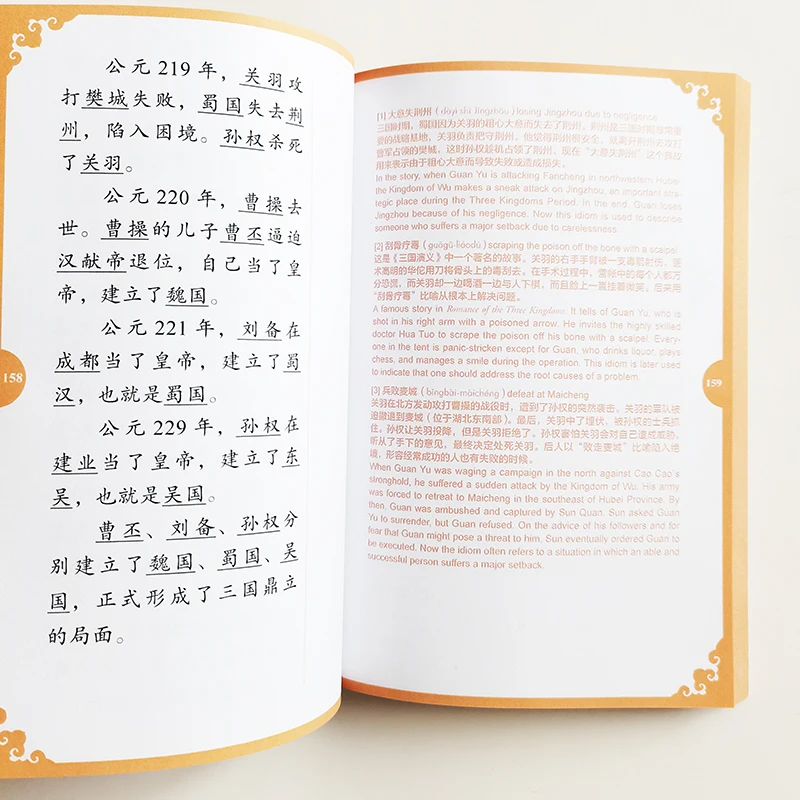 公元219年，关羽攻
打樊城失败，蜀国失去荆
州，陷入困境。孙权杀死
了关羽。
公元220年，曹操去
世。曹操的儿子曹丕逼迫
汉献帝退位，自己当了皇
帝，建立了魏国。
公元221年，刘备在
成都当了皇帝，建立了蜀
汉，也就是蜀国。
公元229年，孙权在
建业当了皇帝，建立了东
吴，也就是吴国。
曹丕、刘备、孙权分
别建立了魏国、蜀国、吴
国，正式形成了三国鼎立
的局面。
158
[1] 大意失荆州 (dàyì shī Jīngzhōu) losing Jingzhou due to negligence
三国时期，蜀国因为关羽的粗心大意而失去了荆州，荆州是三国时期非常重
要的战略基地，关羽负责把守荆州，他觉得荆州很安全，就离开荆州去攻打
曹军占领的樊城，这时孙权趁机占领了荆州。现在“大意失荆州”这个典故
用来表示由于粗心大意而导致失败或造成损失。
In the story, when Guan Yu is attacking Fancheng in northwestern Hubei,
the Kingdom of Wu makes a sneak attack on Jingzhou, an important stra-
tegic place during the Three Kingdoms Period. In the end, Guan loses
Jingzhou because of his negligence. Now this idiom is used to describe
someone who suffers a major setback due to carelessness.
[2] 刮骨疗毒 (guāgǔ-liáodú) scraping the poison off the bone with a scalpel
这是《三国演义》中一个著名的故事。关羽的右手手臂被一支毒箭射伤，医
术高明的华佗用刀将骨头上的毒刮去。在手术过程中，营帐中的每个人都万
分恐慌，而关羽却一边喝酒一边与人下棋，而且脸上一直挂着微笑。后来用
“刮骨疗毒”比喻从根本上解决问题。
A famous story in Romance of the Three Kingdoms. It tells of Guan Yu, who is
shot in his right arm with a poisoned arrow. He invites the highly skilled
doctor Hua Tuo to scrape the poison off his bone with a scalpel. Every-
one in the tent is panic-stricken except for Guan, who drinks liquor, plays
chess, and manages a smile during the operation. This idiom is later used
to indicate that one should address the root causes of a problem.
[3] 兵败麦城 (bīngbài-màichéng) defeat at Maicheng
关羽在北方发动攻打曹操的战役时，遭到了孙权的突然袭击。关羽的军队被
迫撤退到麦城（位于湖北东南部）。最后，关羽中了埋伏，被孙权的士兵抓
住。孙权让关羽投降，但是关羽拒绝了。孙权害怕关羽会对自己造成威胁，
听从了手下的意见，最终决定处死关羽。后人以“败走麦城”比喻陷入绝
境，形容经常成功的人也有失败的时候。
When Guan Yu was waging a campaign in the north against Cao Cao's
stronghold, he suffered a sudden attack by the Kingdom of Wu. His army
was forced to retreat to Maicheng in the southeast of Hubei Province. By
then, Guan was ambushed and captured by Sun Quan. Sun asked Guan
Yu to surrender, but Guan refused. On the advice of his followers and for
fear that Guan might pose a threat to him. Sun eventually ordered Guan to
be executed. Now the idiom often refers to a situation in which an able and
successful person suffers a major setback.
159